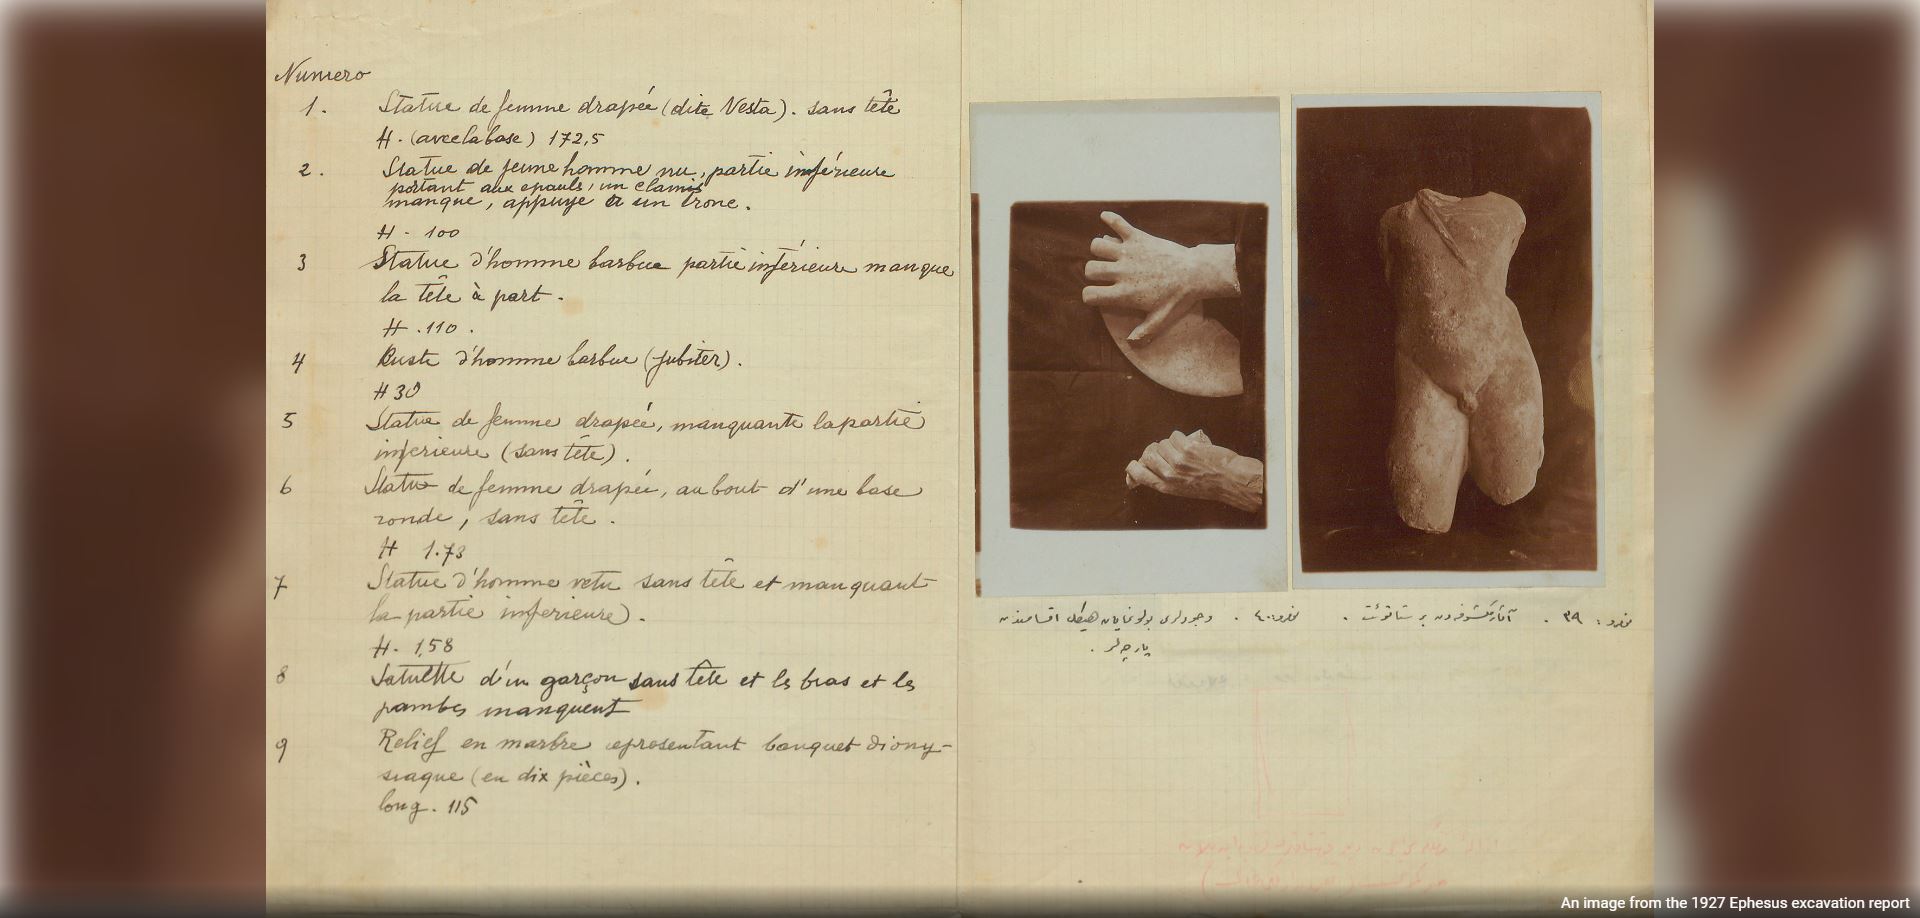 Numero
1. Statue de femme drapée (dite Vesta). sans tête
H. (avec la base) 172,5
2. Statue de jeune homme nu, partie inférieure
portant aux epauls, un clamis
manque, appuye a un trone.
H - 100
3 Statue d'homme barbue partie inférieure manque
la tête à part.
H. 110.
4 Buste d'homme barbue (Jubiter).
H 30
5 Statue de femme drapée, manquante la partie
inferieure (sans tête).
6 Statue de femme drapée, au bout d'une base
ronde, sans tête.
H 1.73
7 Statue d'homme vetu sans tête et manquant
la partie inferieure).
H. 1,58
8 Satuette d'un garçon sans tête et ls bras et les
jambes manquent
9 Relief en marbre epresentant banquet diony-
siaque (en dix pièces).
long. 115
نومرو: ٣٩. آثار مكشوفه‌دن بر
نومرو: ٤٠.
پارچه‌لر.
An image from the 1927 Ephesus excavation report